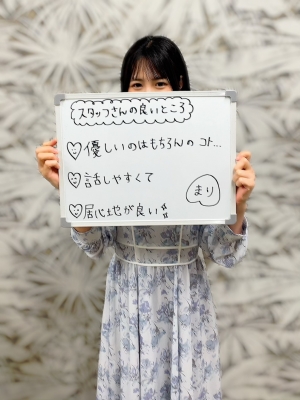 スタッフさんの良いところ
優しいのはもちろんのコト…
話しやすくて
居心地が良い!!
まり